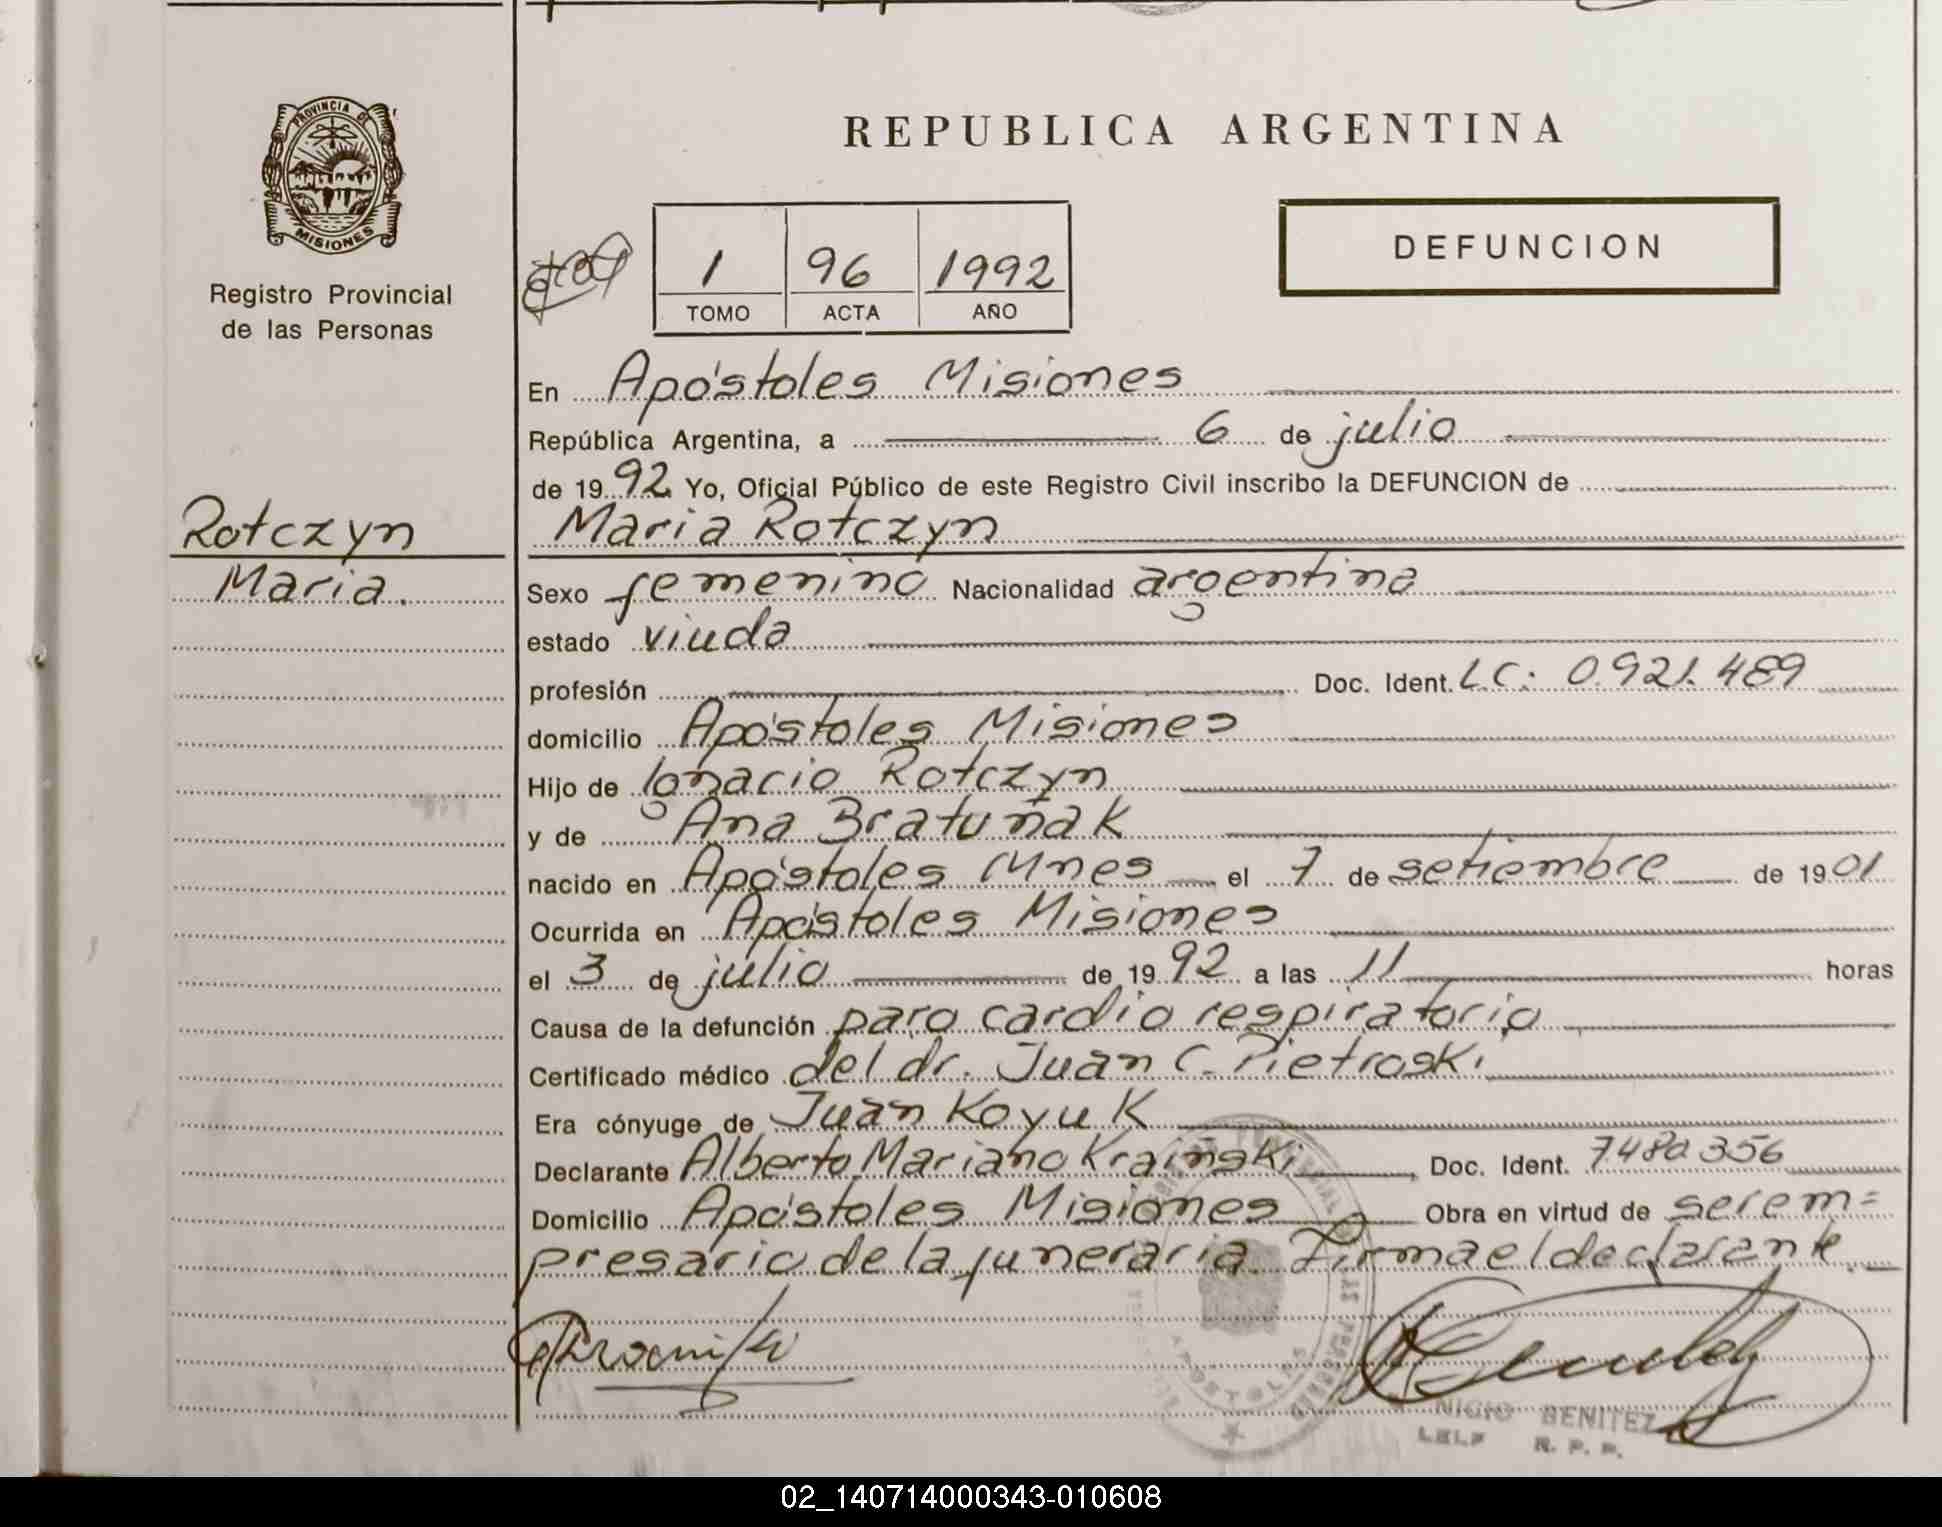 PROVINCIA DE
MISIONES
Registro Provincial
de las Personas
Rotczyn
Maria.
REPUBLICA ARGENTINA
1 96 1992
TOMO ACTA AÑO
DEFUNCION
En Apóstoles Misiones
República Argentina, a 6 de julio
de 1992. Yo, Oficial Público de este Registro Civil inscribo la DEFUNCION de
Maria Rotczyn
Sexo femenino Nacionalidad argentina
estado viuda
profesión Doc. Ident. L.C: 0.921.489
domicilio Apóstoles Misiones
Hijo de Ignacio Rotczyn
y de Ana Bratuñak
nacido en Apóstoles Mnes el 7 de setiembre de 1901
Ocurrida en Apóstoles Misiones
el 3 de julio de 1992 a las 11 horas
Causa de la defunción paro cardio respiratorio
Certificado médico del dr. Juan C. Pietroski
Era cónyuge de Juan Koyuk
Declarante Alberto Mariano Kraiñski, Doc. Ident. 7480356
Domicilio Apóstoles Misiones Obra en virtud de ser em=
presario de la funeraria. Firma el declarante.
APOSTOLES
BENITEZ
R. P. P.
02_140714000343-010608